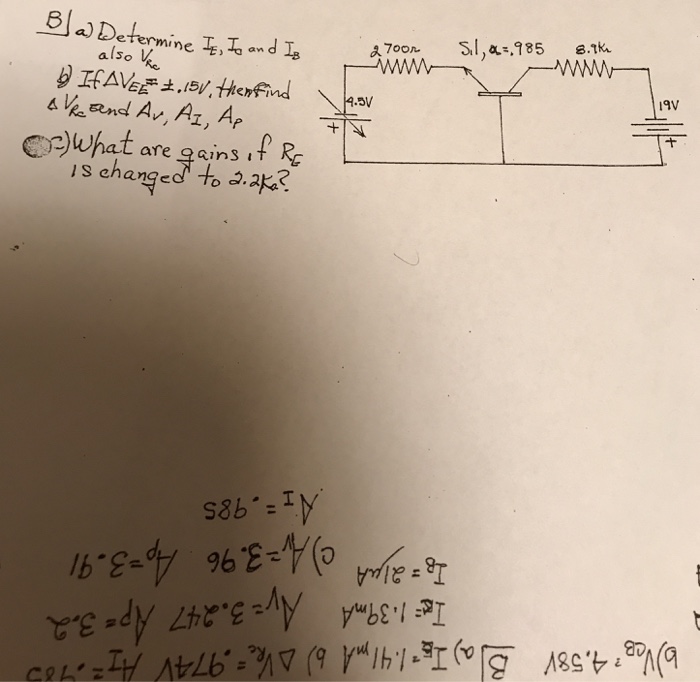 B) a) Determine IE, IC and IB
also VRc
b) If ΔVEE = ±.15V, then find
ΔVRc and Av, AI, Ap
c) What are gains if RE
is changed to 2.2KΩ?
2700Ω
Sil, α=.985
4.5V
+
19V
+
b) VCB = 4.58V
B a) IE = 1.41 mA b) ΔVRc = .974V AI = .985
= 1.39mA Av = 3.247 Ap = 3.2
IB = 21μA c) Av = 3.96 Ap = 3.91
AI = .985